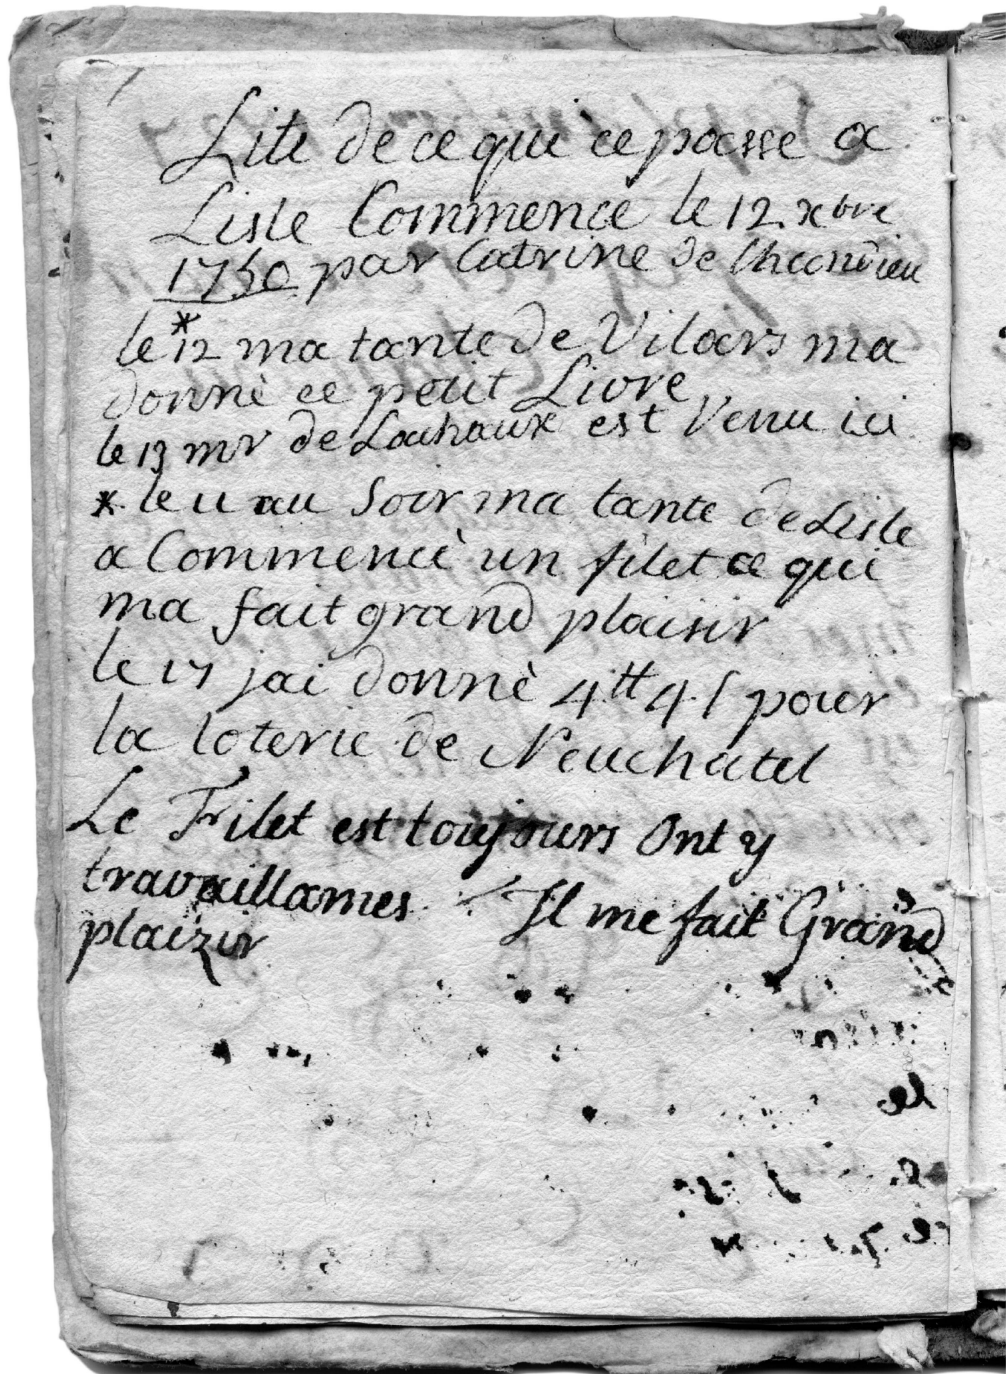 Lite de ce qui ce passe a
Lisle Commence le 12. xbre
1750 par Catrine de Chandieu
le *12 ma tante de Vilars ma
donnè ce petit Livre
le 13 mr de Lachaux est Venu ici
* le 11 au Soir ma tante de Lisle
a Commencè un filet ce qui
ma fait grand plaisir
le 17 jai donnè 4tt 4 s pour
la loterie de Neuchatel
Le Filet est toujours Ont y
travaillames Il me fait Grand
plaizir